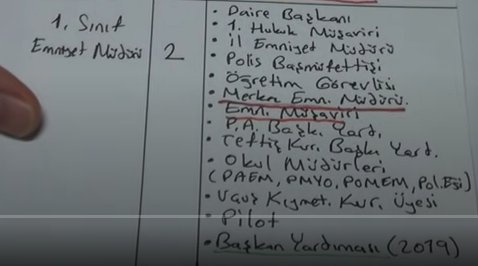 1. Sınıf
Emniyet Müdürü
2
• Daire Başkanı
• 1. Hukuk Müşaviri
• İl Emniyet Müdürü
• Polis Başmüfettişi
• Öğretim Görevlisi
• Merkez Emn. Müdürü.
• Emn. Müşaviri
• P.A. Başk. Yard.
• Teftiş Kur. Başk. Yard.
• Okul Müdürleri
(PAEM, PMYO, POMEM, Pol.Eği)
• Uçuş Kıymet. Kur. Üyesi
• Pilot
• Başkan Yardımcısı (2019)